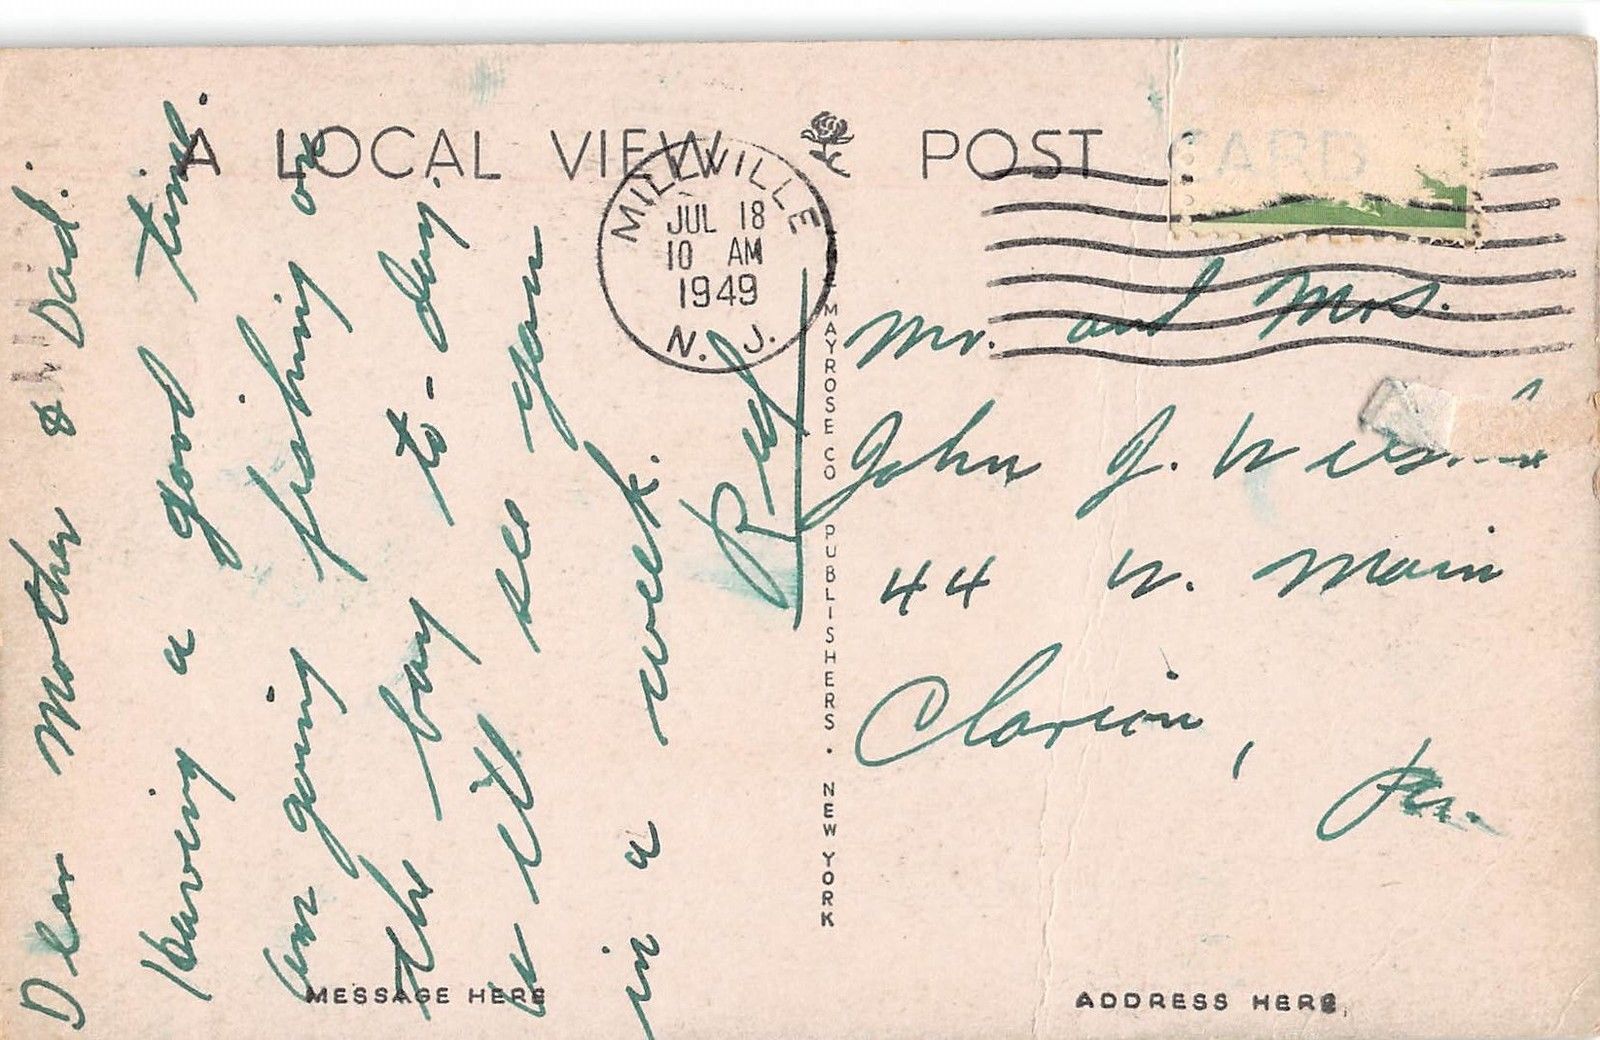 A LOCAL VIEW POST CARD
MILLVILLE
JUL 18
10 AM
1949
N. J.
Dear Mother & Dad:
Having a good time.
Am going fishing on
the bay to-day.
We'll see you
in a week.
MAYROSE CO PUBLISHERS. NEW YORK
Mr. and Mrs.
John J.
44 N. Main
Clarion,
Pa.
MESSAGE HERE
ADDRESS HERE